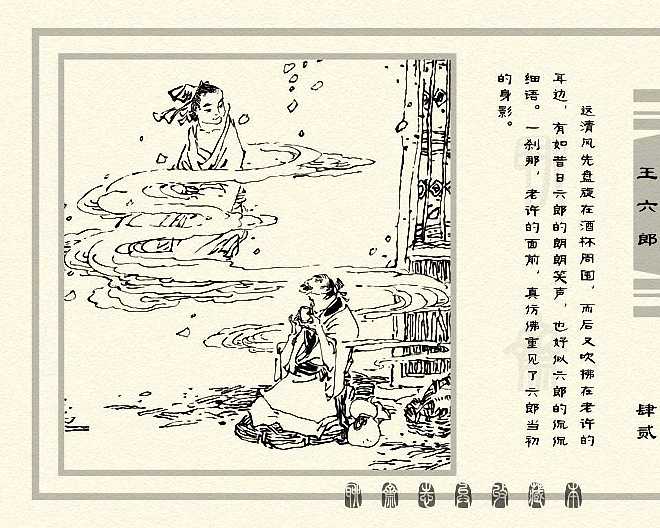 王六郎
肆贰
这清风先盘旋在酒杯周围，而后又吹拂在老许的
耳边，有如昔日六郎的朗朗笑声，也好似六郎的侃侃
细语。一刹那，老许的面前，真仿佛重见了六郎当初
的身影。
聊齋志異珍藏本